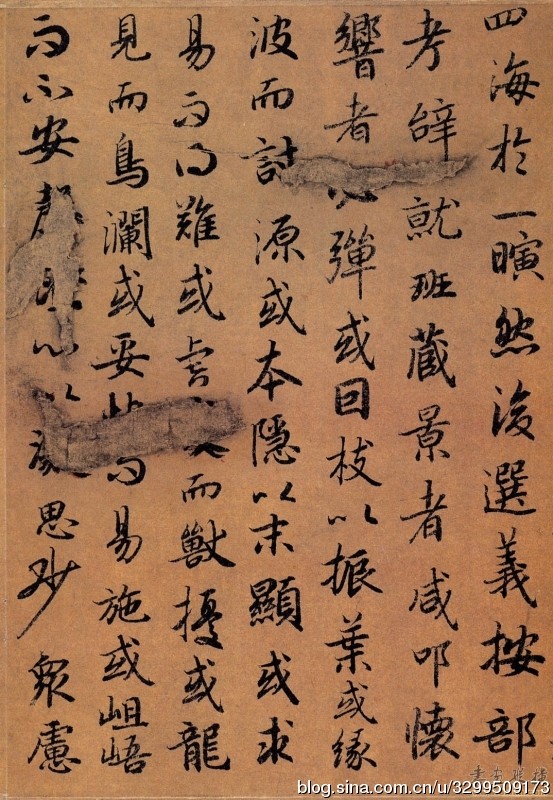 四海於一瞚然後選義按部
考辭就班藏景者咸叩懷
響者彈或因枝以振葉或緣
波而討源或本隱以末顯或求
易而得難或虎而獸擾或龍
見而鳥瀾或妥帖而易施或岨峿
而不安罄心以思眇衆慮
blog.sina.com.cn/u/3299509173